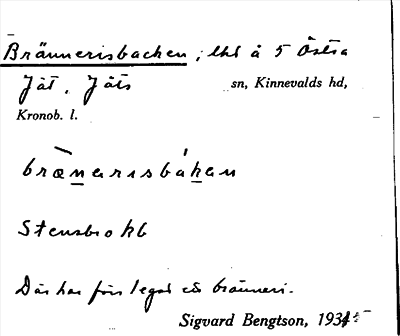 Brännerisbacken, lht å 5 Östra
Jät, Jäts sn, Kinnevalds hd,
Kronob. l.
bræ̀nerɪsbákən
Stensbrokb
Där har förr legat ett bränneri.
Sigvard Bengtson, 1934